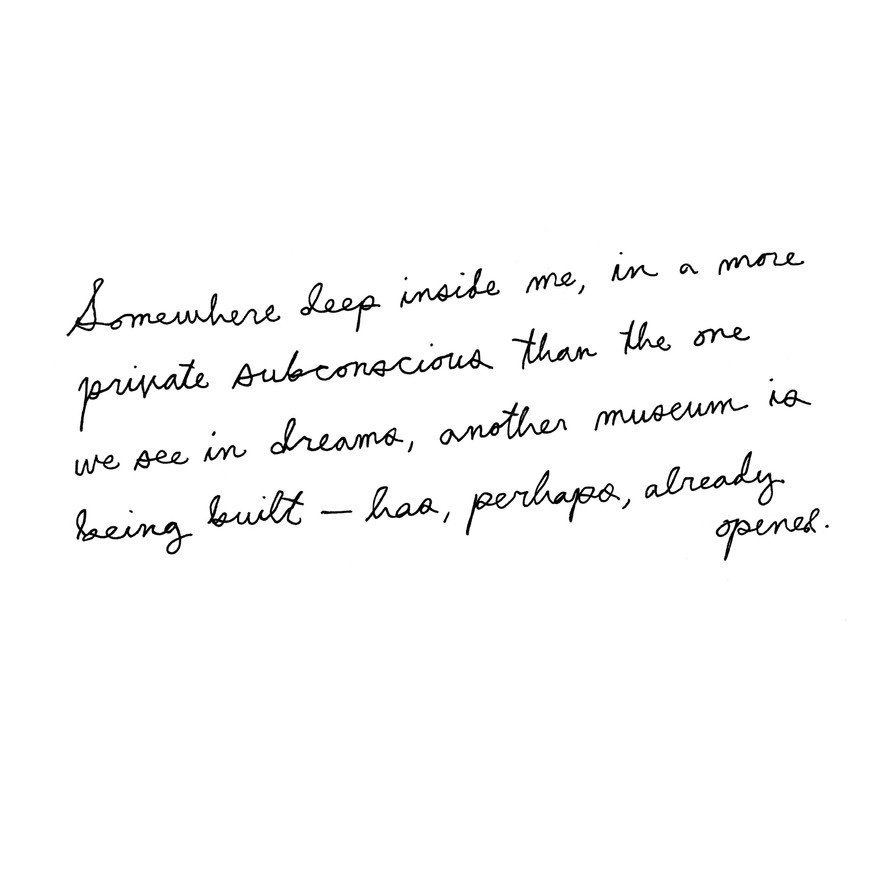 Somewhere deep inside me, in a more
private subconscious than the one
we see in dreams, another museum is
being built — has, perhaps, already
opened.